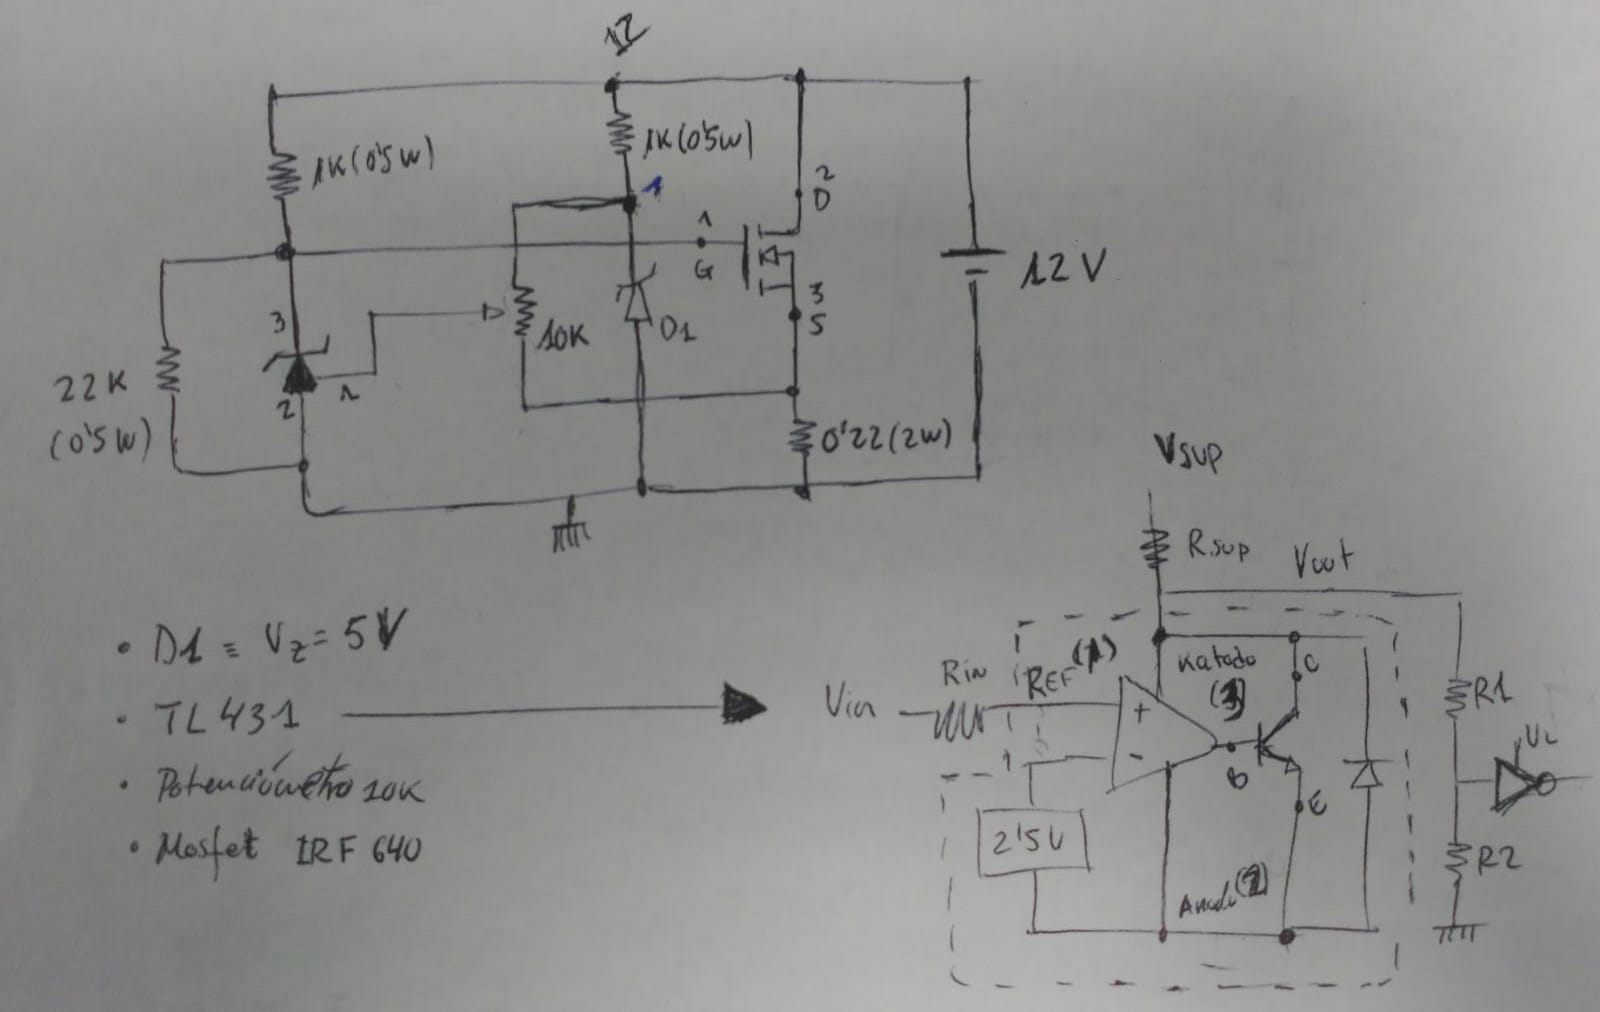 12
1K(0'5W)
1K(0'5W)
1
2
D
1
G
3
S
12V
3
10K
D1
22K
(0'5W)
2
1
0'22(2W)
Vsup
Rsup
Vout
• D1 ≡ Vz = 5V
• TL431
• Potenciómetro 10K
• Mosfet IRF 640
Vin
Rin
REF (1)
Katodo
(3)
C
+
-
B
E
2'5V
Anodo (2)
R1
R2